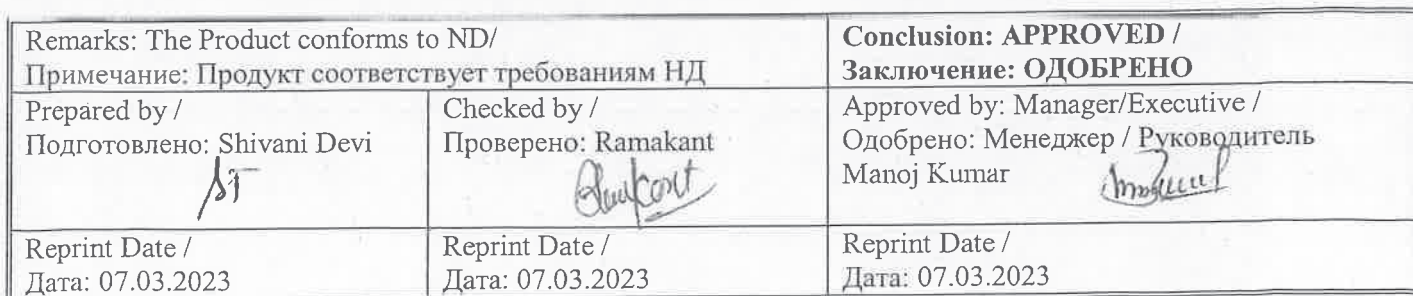 Remarks: The Product conforms to ND/
Примечание: Продукт соответствует требованиям НД
Conclusion: APPROVED /
Заключение: ОДОБРЕНО
Prepared by /
Подготовлено: Shivani Devi
Checked by /
Проверено: Ramakant
Approved by: Manager/Executive /
Одобрено: Менеджер / Руководитель
Manoj Kumar
Reprint Date /
Дата: 07.03.2023
Reprint Date /
Дата: 07.03.2023
Reprint Date /
Дата: 07.03.2023